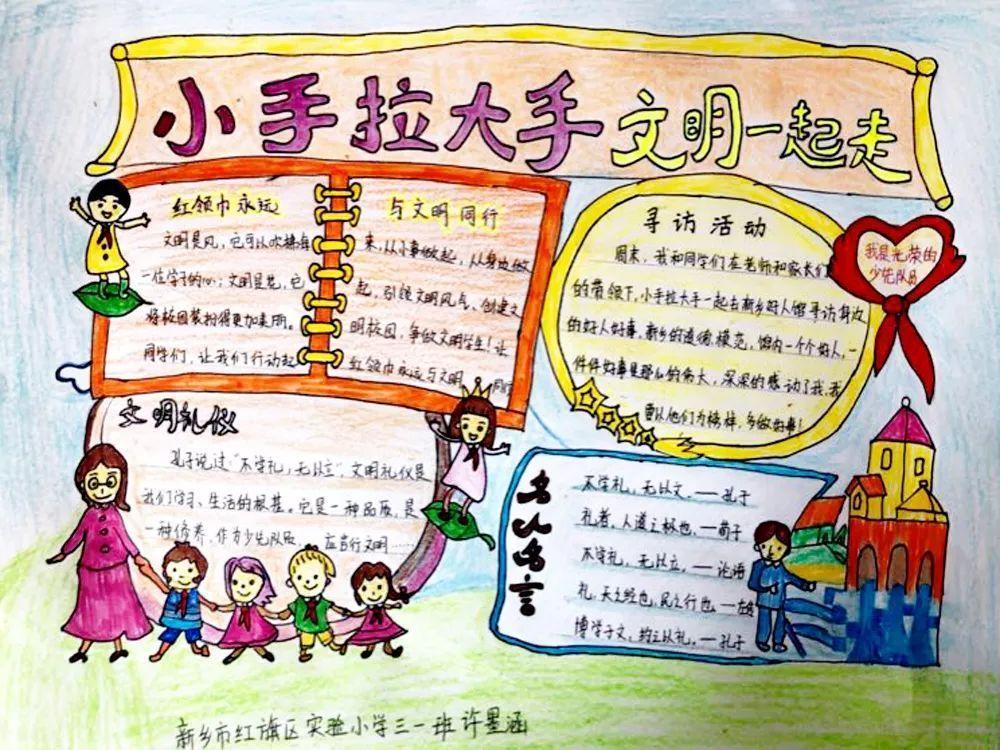 小手拉大手 文明一起走
红领巾永远
文明是风，它可以吹拂每
一位学子的心；文明是花，它
将校园装扮得更加美丽。
同学们，让我们行动起
与文明同行
来，从小事做起，从身边做
起，引领文明风气、创建文
明校园，争做文明学生！让
红领巾永远与文明 同行
寻访活动
周末，我和同学们在老师和家长们
的带领下，小手拉大手一起去新乡好人馆寻访身边
的好人好事。新乡的道德模范，馆内一个个好人，一
件件好事是那么的伟大，深深的感动了我，我
要以他们为榜样，多做好事！
我是光荣的
少先队员
文明礼仪
孔子说过“不学礼，无以立”文明礼仪是
我们学习、生活的根基。它是一种品质，是
一种修养，作为少先队员， 应言行文明……
名人名言
不学礼，无以文。——孔子
礼者，人道之极也。——荀子
不学礼，无以立。——论语
礼，天之经也，民之行也。——左传
博学于文，约之以礼。——孔子
新乡市红旗区实验小学三一班 许墨涵